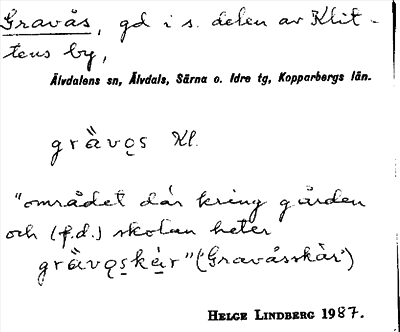 Gravås, gd i s. delen av Klit-
tens by,
Älvdalens sn, Älvdals, Särna o. Idre tg, Kopparbergs län.
gràvo̜s Kl.
"området där kring gården
och (f.d.) skolan heter
gràvo̜s̠kèr" ("Gravåsskär")
HELGE LINDBERG 1987.